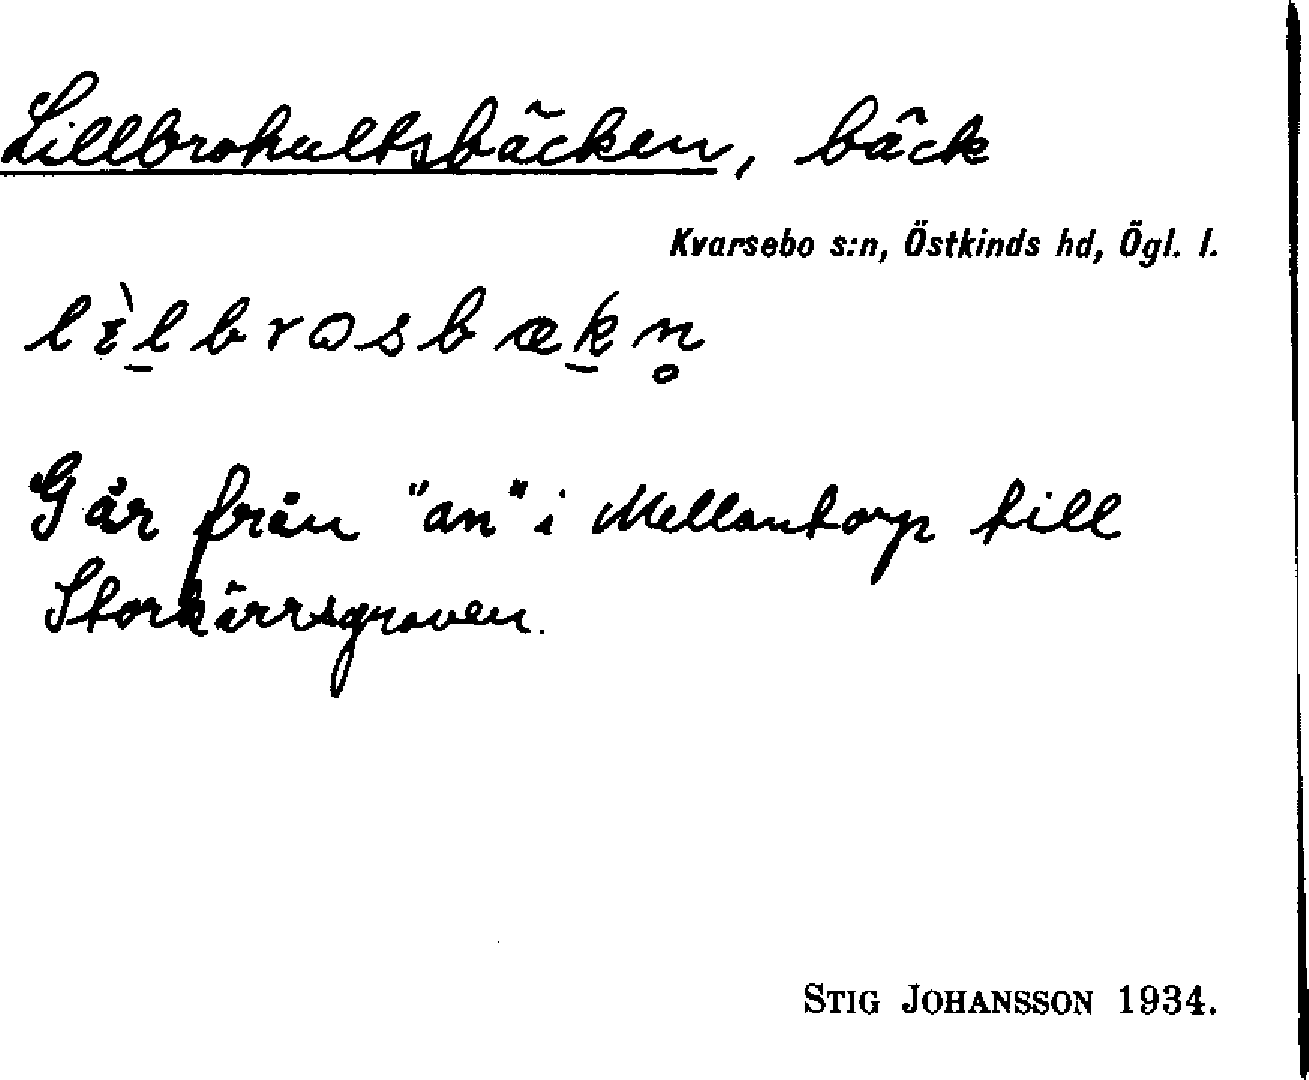 Lillbrohultsbäcken, bäck
Kvarsebo s:n, Östkinds hd, Ögl. l.
Går från "an" i Mellantorp till
Storkärrsgraven.
STIG JOHANSSON 1934.